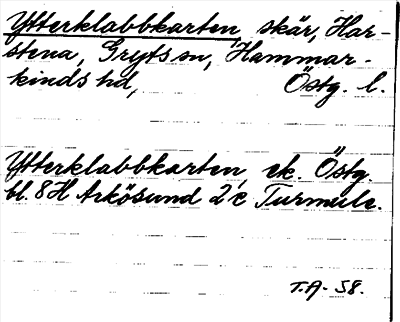 Ytterklabbkarten, skär, Har-
stena, Gryts sn, Hammar-
kinds hd, Östg. l.
Ytterklabbkarten, ek. Östg.
bl. 8H Arkösund 2'c Turmule.
T.A. 58.